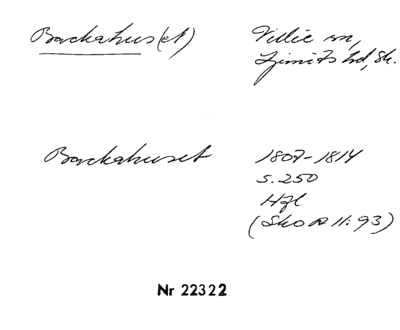 Backahus(et) Villie sn,
Ljunits hd, Sk.
Backahuset 1807-1814
s. 250
Hfl
(Sko A 11:93)
Nr 22322